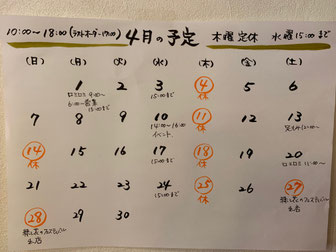 10:00〜18:00(ラストオーダー17:00) 4月の予定 木曜定休 水曜15:00まで
(日) (月) (火) (水) (木) (金) (土)
1 2 3 4 5 6
15:00まで 休
営業
15:00まで
7 8 9 10 11 12 13
14:00〜16:00 休
イベント
14 15 16 17 18 19 20
休 15:00まで 休
15:00まで
21 22 23 24 25 26 27
15:00まで 休
出店
28 29 30
出店